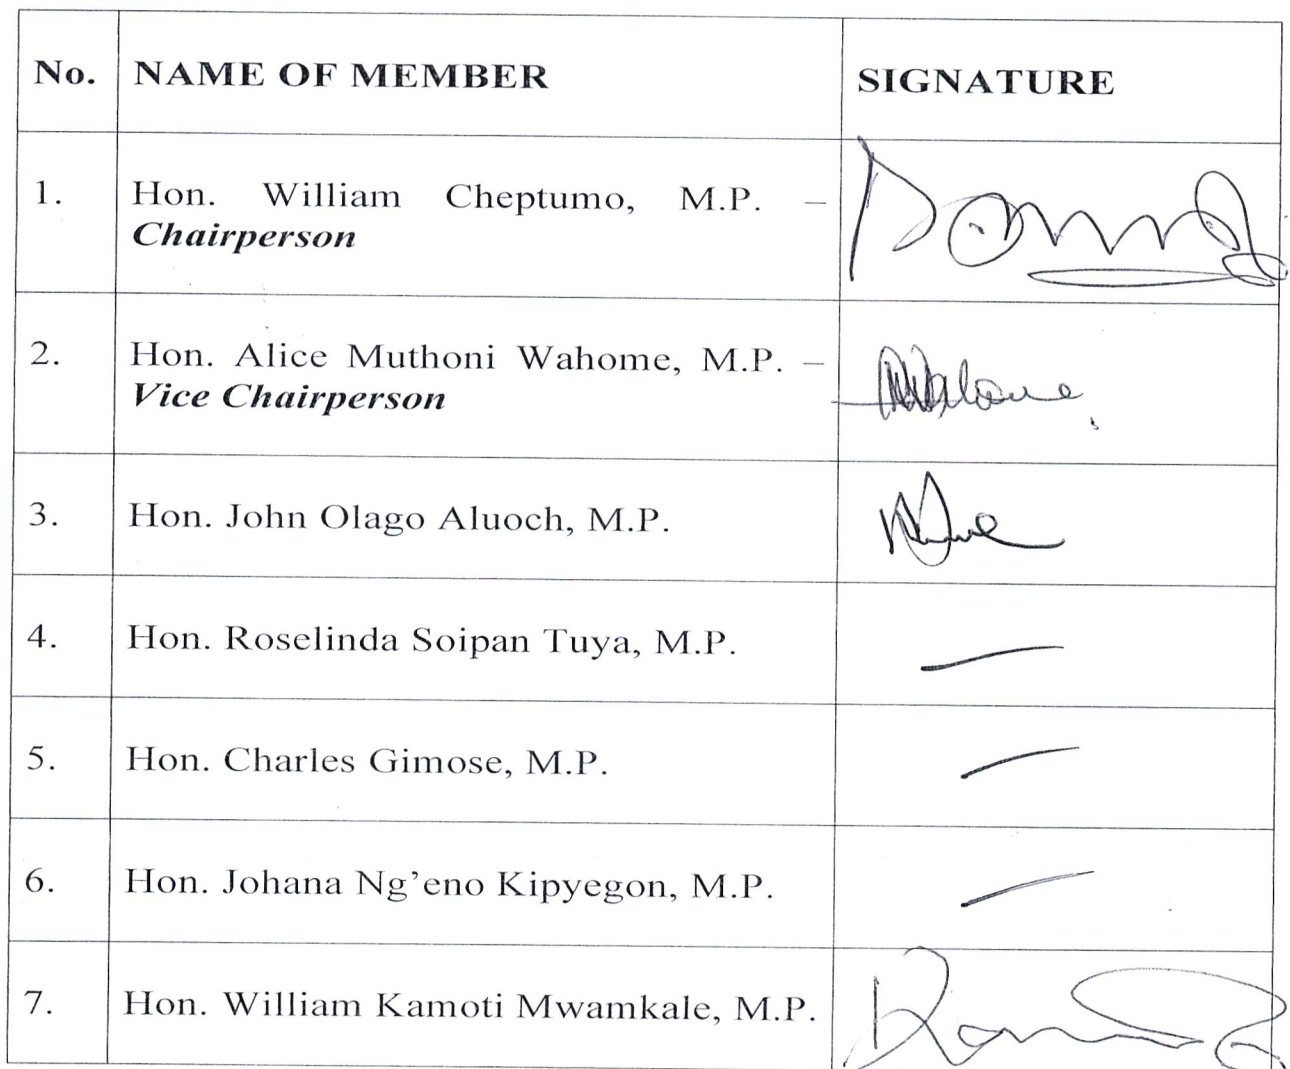 No. NAME OF MEMBER SIGNATURE
1. Hon. William Cheptumo, M.P. –
Chairperson
2. Hon. Alice Muthoni Wahome, M.P. –
Vice Chairperson
3. Hon. John Olago Aluoch, M.P.
4. Hon. Roselinda Soipan Tuya, M.P.
5. Hon. Charles Gimose, M.P.
6. Hon. Johana Ng’eno Kipyegon, M.P.
7. Hon. William Kamoti Mwamkale, M.P.